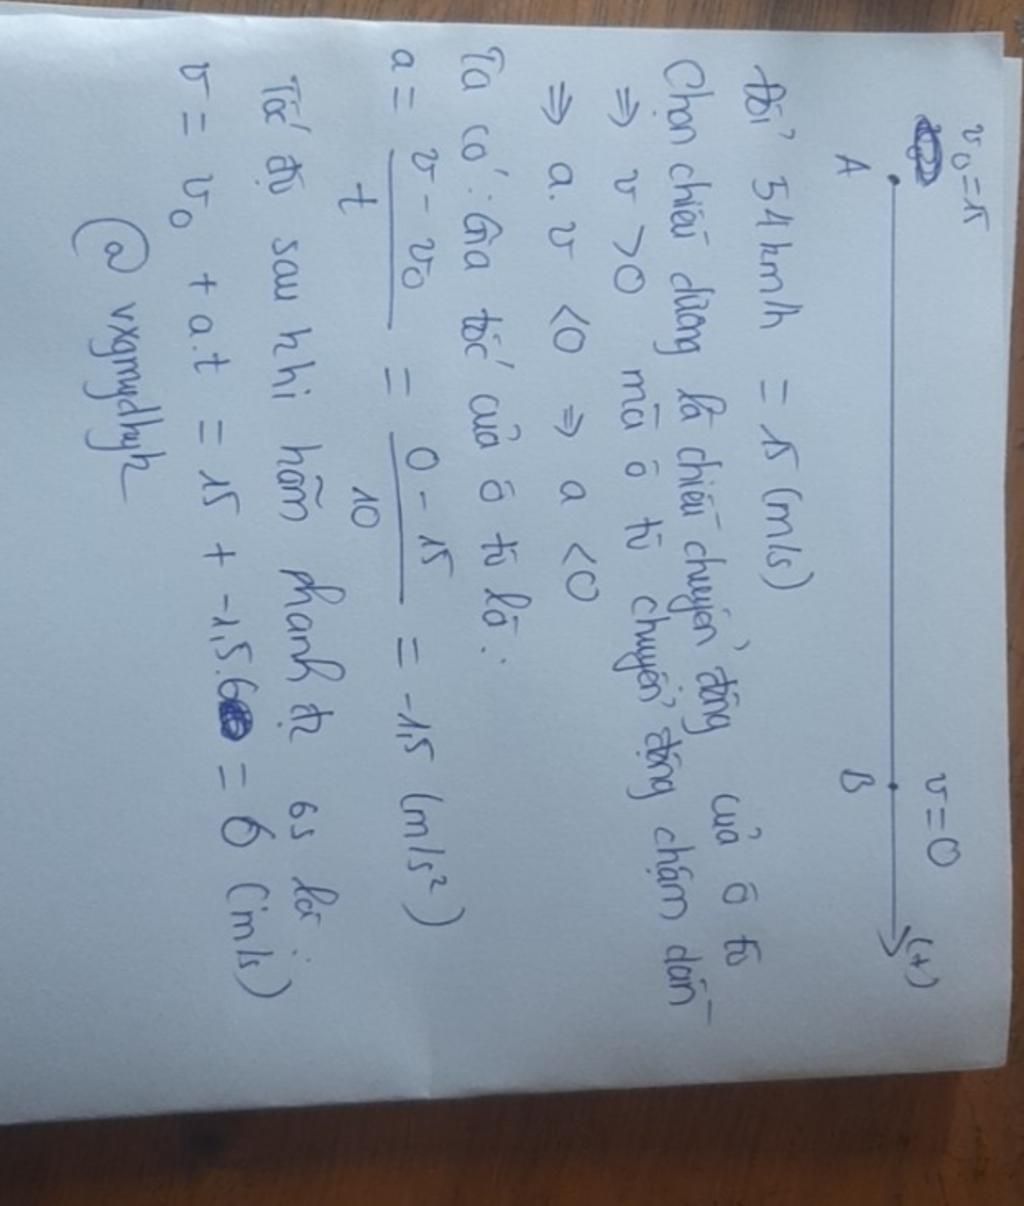 v₀=15 v=0 (+)
A B
Đổi 54km/h = 15 (m/s)
Chọn chiều dương là chiều chuyển động của ô tô
⇒ v >0 mà ô tô chuyển động chậm dần
⇒ a.v <0 ⇒ a <0
Ta có: Gia tốc của ô tô là:
a = (v - v₀)/t = (0 - 15)/10 = -1,5 (m/s²)
Tốc độ sau khi hãm phanh đc 6s là:
v = v₀ + a.t = 15 + -1,5.6 = 6 (m/s)
@ vxgmydhyk